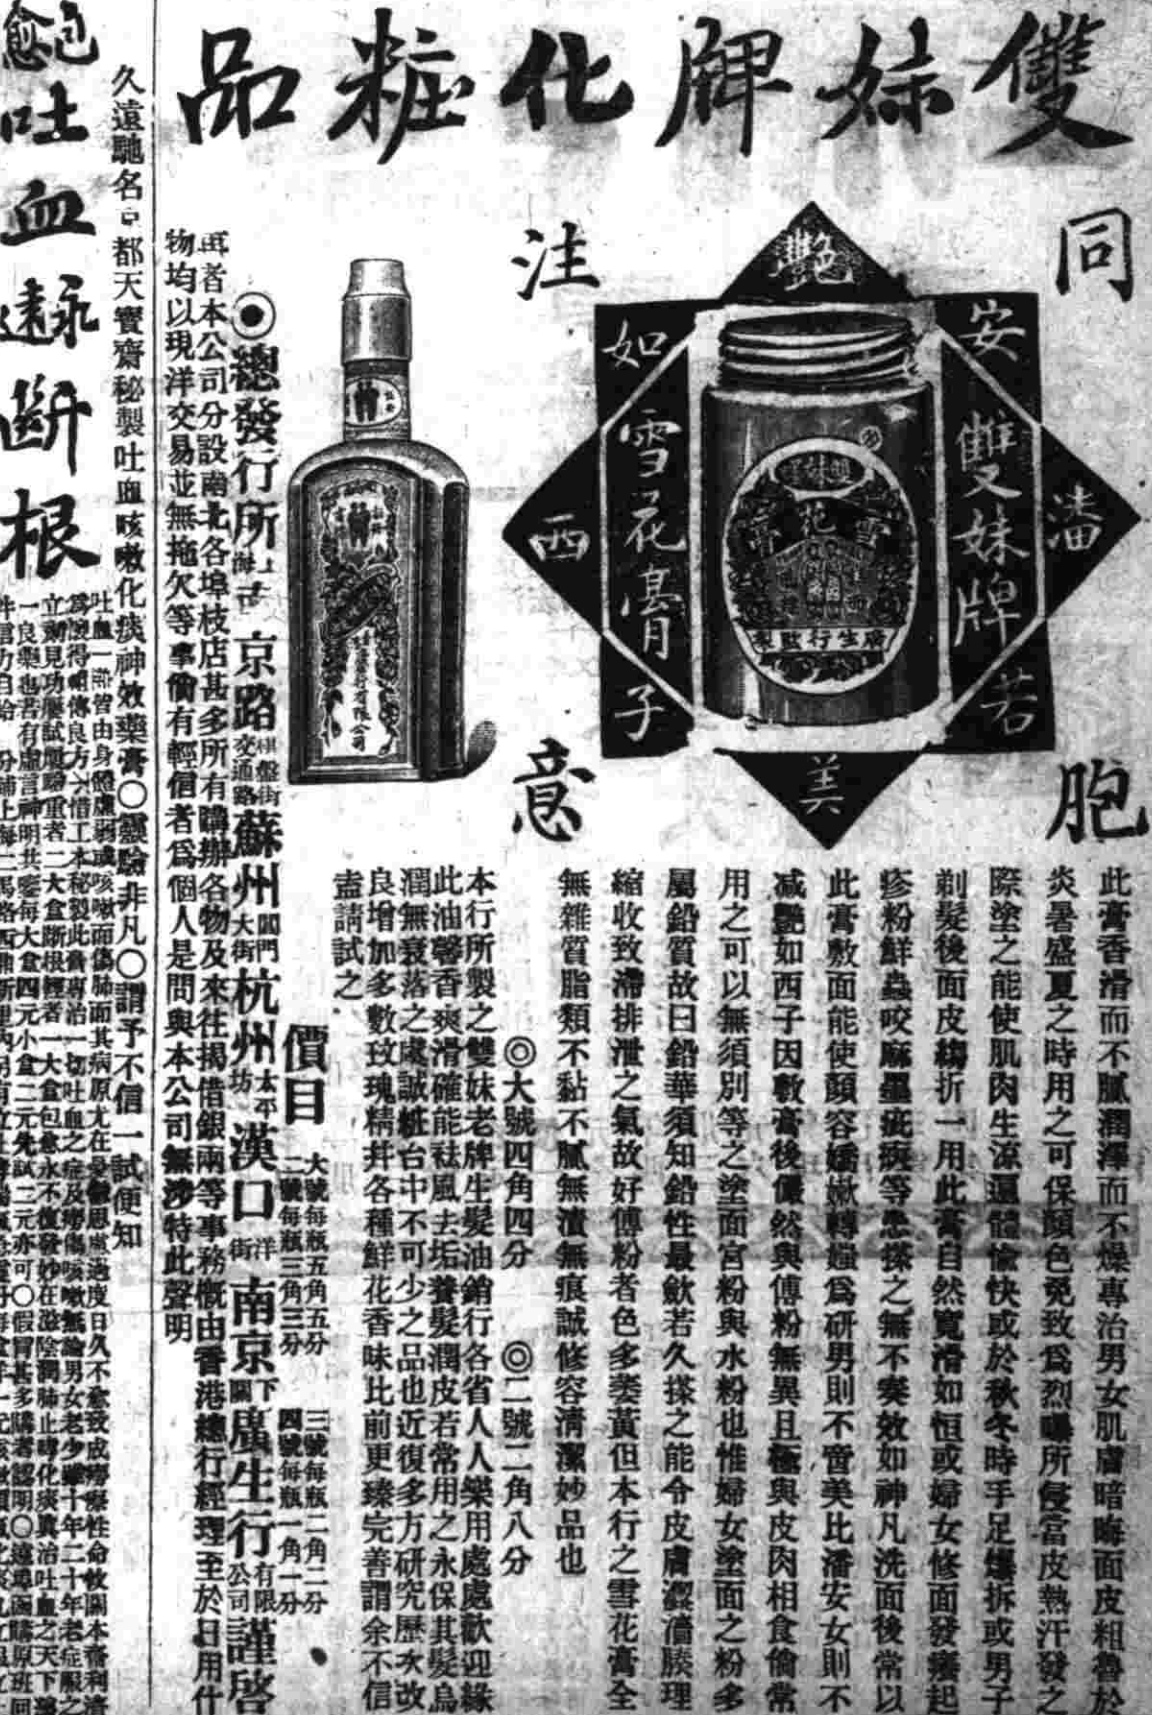 雙妹牌化粧品
同胞注意
美若潘安
艷如西子
雙妹牌
雪花膏
雪花膏
廣生行監製
有限公司
此膏香滑而不膩潤澤而不燥專治男女肌膚暗晦面皮粗魯於
炎暑盛夏之時用之可保顏色免致爲烈曝所侵當皮熱汗發之
際塗之能使肌肉生涼還體愉快或於秋冬時手足爆拆或男子
剃髮後面皮縐折一用此膏自然寬滑如恒或婦女修面發癢起
疹粉鮮蟲咬麻墨疵斑等患搽之無不奏效如神凡洗面後常以
此膏敷面能使顏容嬌嫩轉媸爲研男則不啻美比潘安女則不
减艷如西子因敷膏後儼然與傅粉無異且極與皮肉相食倘常
用之可以無須別等之塗面宮粉與水粉也惟婦女塗面之粉多
屬鉛質故曰鉛華須知鉛性最歛若久搽之能令皮膚澀滯腠理
縮收致滯排泄之氣故好傅粉者色多萎黃但本行之雪花膏全
無雜質脂類不黏不膩無漬無痕誠修容淸潔妙品也
◎大號四角四分 ◎二號二角八分
本行所製之雙妹老牌生髮油銷行各省人人樂用處處歡迎緣
此油馨香爽滑確能袪風去垢養髮潤皮若常用之永保其髮烏
潤無衰落之處誠粧台中不可少之品也近復多方研究歷次改
良增加多數玫瑰精幷各種鮮花香味比前更臻完善謂余不信
盍請試之
價目
大號每瓶五角五分
二號每瓶三角三分
三號每瓶二角二分
四號每瓶一角一分
◉總發行所上海南京路棋盤街交通路蘇州閶門大街杭州太平坊漢口洋街南京下關廣生行有限公司謹啓
再者本公司分設南北各埠枝店甚多所有購辦各物及來往揭借銀兩等事務慨由香港總行經理至於日用什
物均以現洋交易並無拖欠等事倘有輕信者爲個人是問與本公司無涉特此聲明
包愈吐血永遠斷根
久遠馳名京都天寶齋秘製吐血咳嗽化痰神效藥膏〇靈驗非凡〇謂予不信一試便知